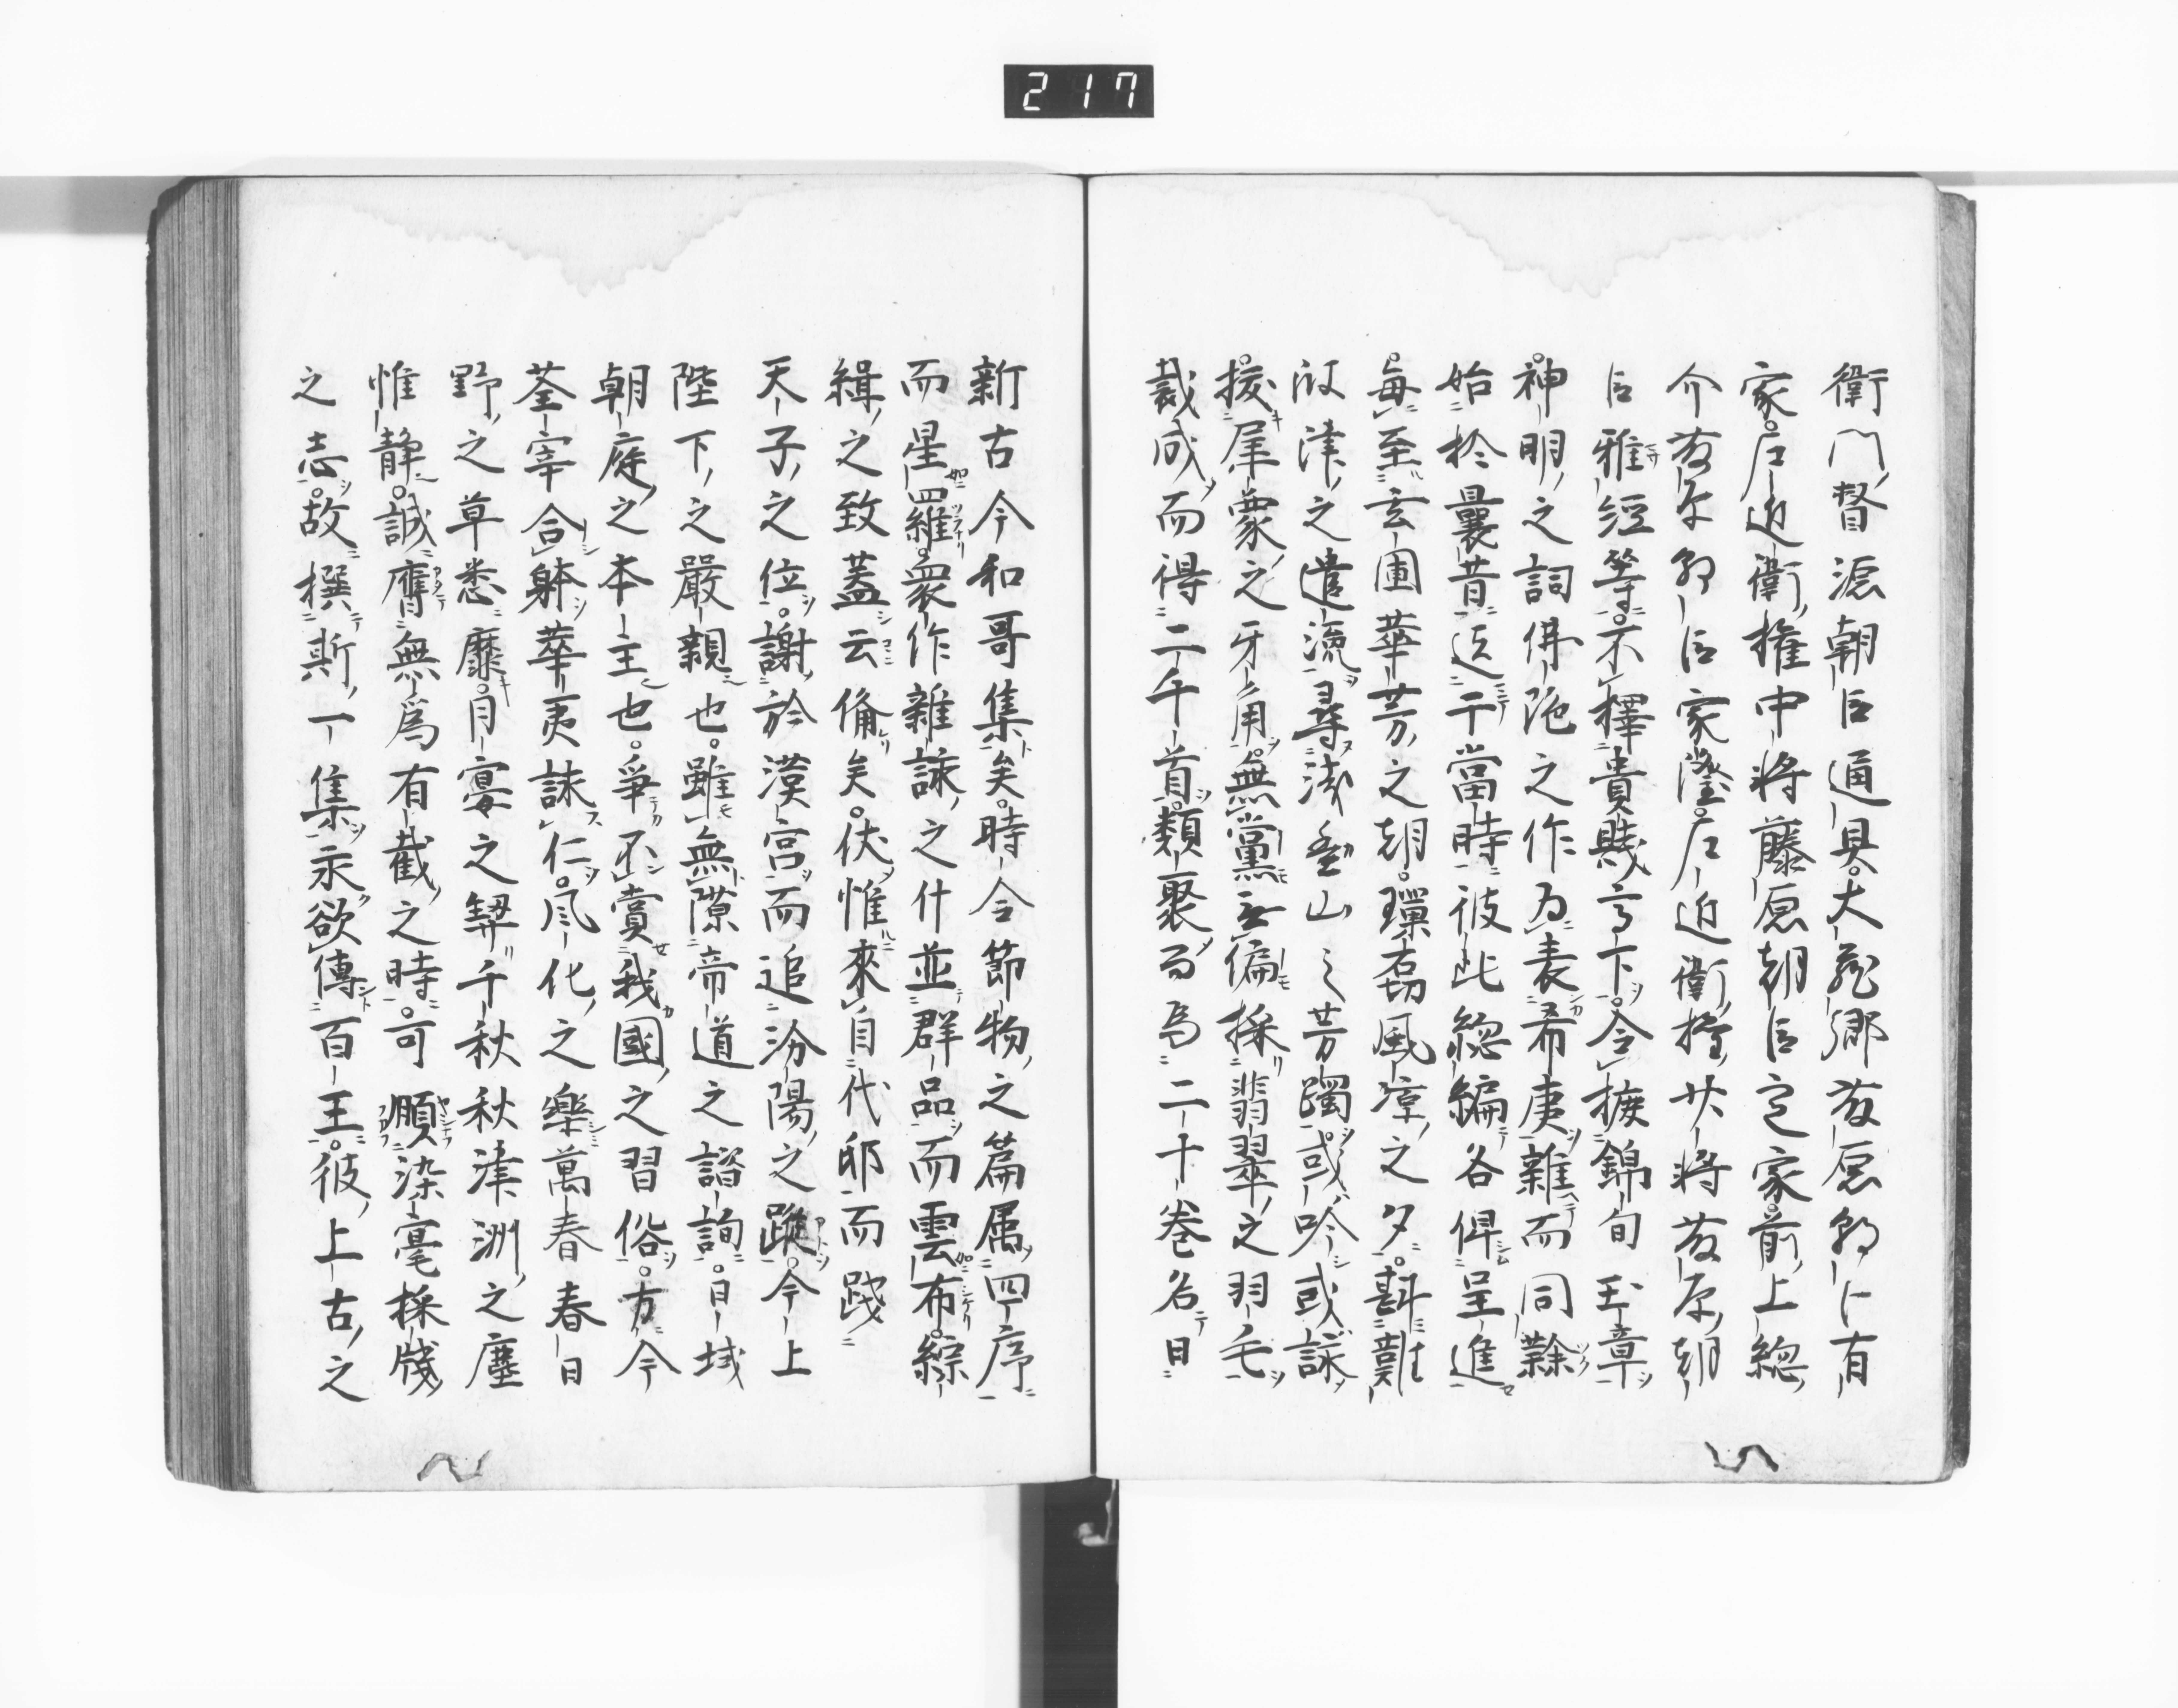 217
衛門督源朝臣通具。大蔵卿藤原朝臣有
家。左近衛権中将藤原朝臣定家。前上総
介藤原朝臣家隆。左近衛権少将藤原朝
臣雅経等。不擇貴賤高下。令摭錦句玉章。
神明之詞佛陁之作為表希夷雑而同隷。
始於曩昔迄于當時彼此総編各俾呈進
毎至玄圃華芳之朝。璅砌風凉之夕。斟難
波津之遺流尋浅香山之芳躅。或吟或詠
抜犀象之牙角。無黨無偏採翡翠之羽毛
裁成而得二千首。類聚而為二十巻名曰
新古今和哥集矣。時令節物之篇属四序
而星羅。衆作雑詠之什並群品而雲布。綜
緝之致蓋云備矣。伏惟來自代邸而踐
天子之位。謝於漢宮而追汾陽之蹤。今上
陛下之嚴親也。雖無隙帝道之諮詢。日域
朝庭之本主也。争不賞我國之習俗。方今
荃宰合躰華夷詠仁。風化之樂萬春春日
野之草悉靡。月宴之契千秋秋津洲之塵
惟静。誠膺無為有截之時。可頤染毫採牋
之志。故撰斯一集永欲傳百王。彼上古之